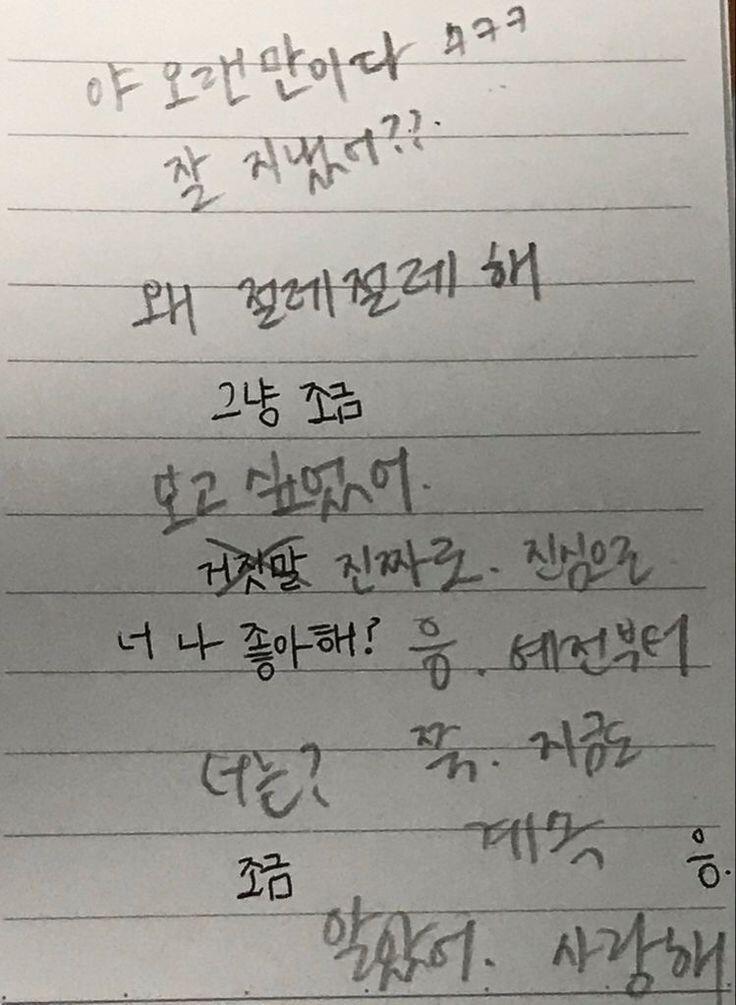 야 오랜만이다 ㅋㅋㅋ
잘 지냈어??
왜 절레절레 해
그냥 조금
보고 싶었어.
거짓말 진짜로. 진심으로
너 나 좋아해? 응. 예전부터
너는? 쭉. 지금도
조금 계속 응.
알았어. 사랑해